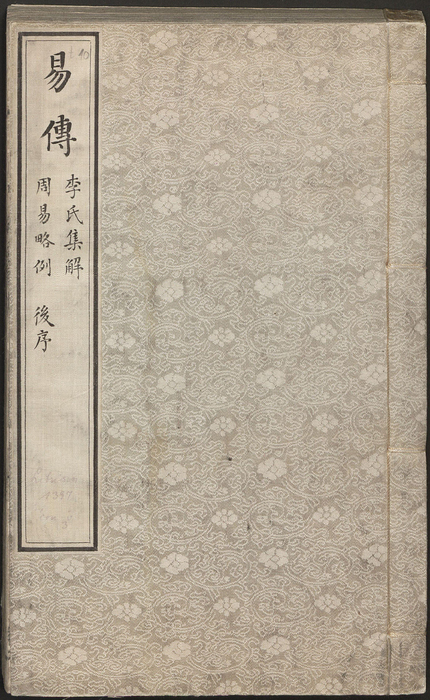 易傳
李氏集解
周易略例 後序